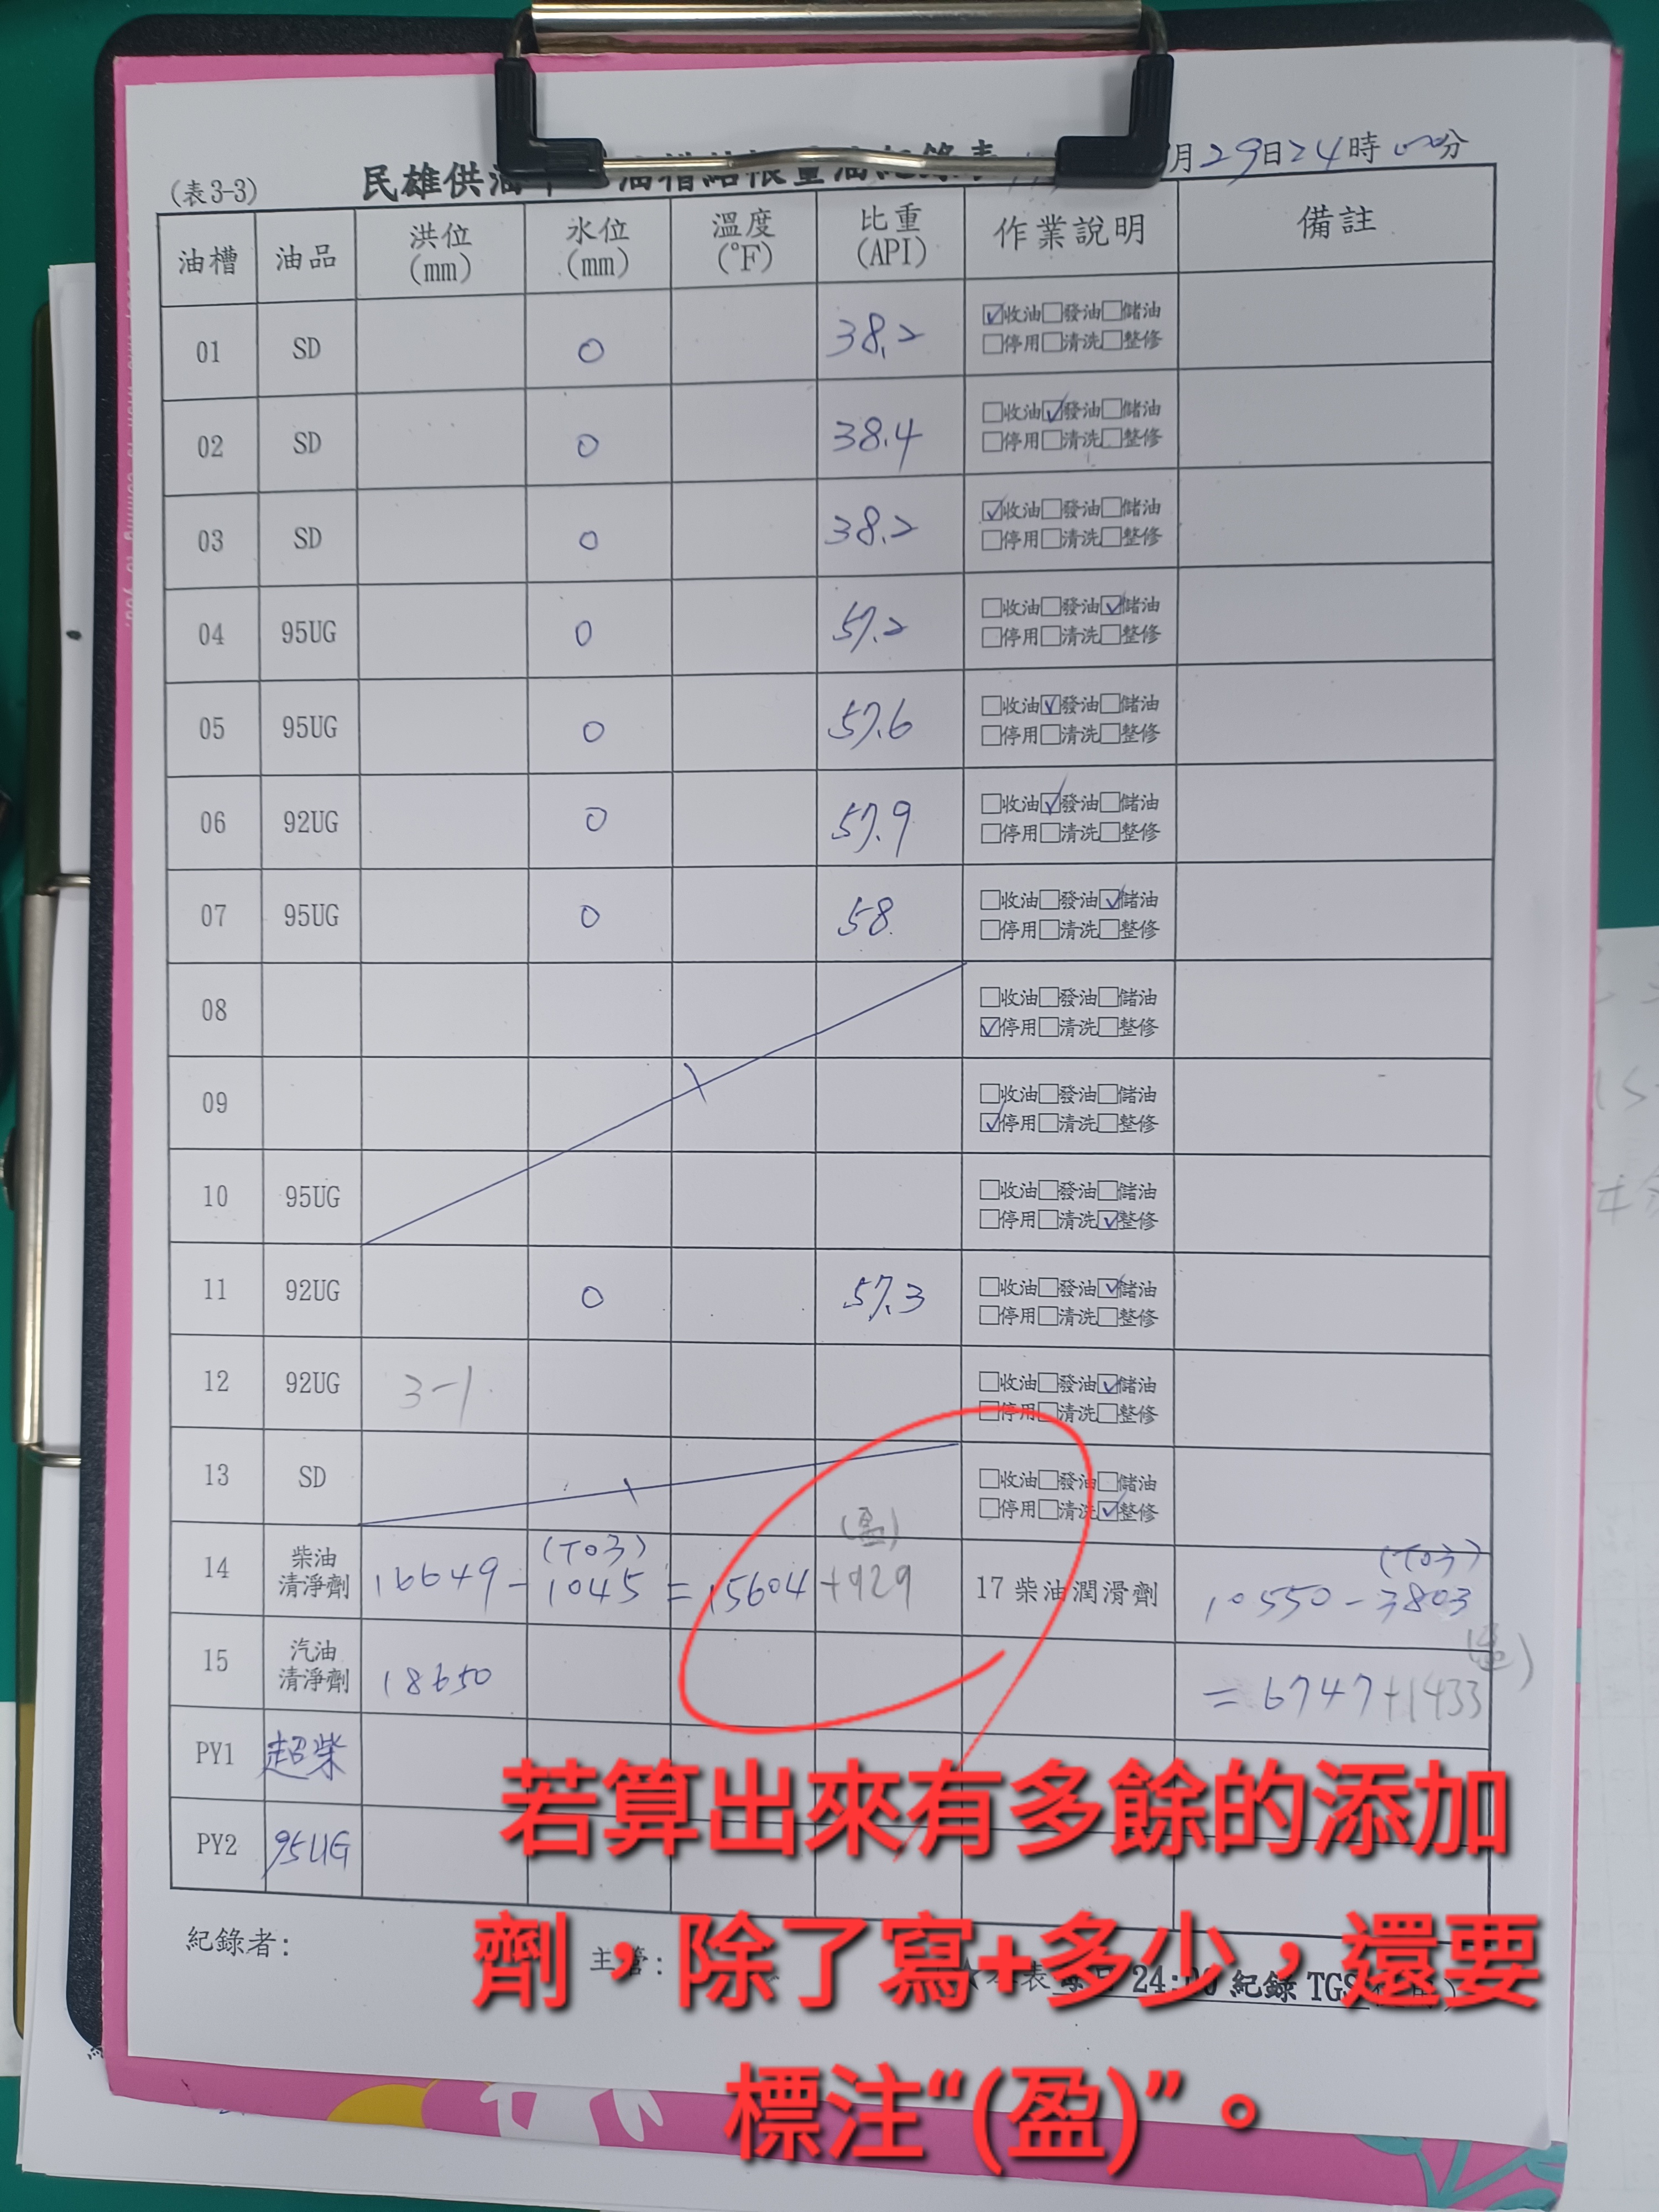 (表3-3) 民雄供油 月29日24時00分
油槽 油品 洪位(mm) 水位(mm) 溫度(°F) 比重(API) 作業說明 備註
01 SD 0 38.2 ☑收油□發油□儲油
□停用□清洗□整修
02 SD 0 38.4 □收油☑發油□儲油
□停用□清洗□整修
03 SD 0 38.2 ☑收油□發油□儲油
□停用□清洗□整修
04 95UG 0 57.2 □收油□發油☑儲油
□停用□清洗□整修
05 95UG 0 57.6 □收油☑發油□儲油
□停用□清洗□整修
06 92UG 0 57.9 □收油☑發油□儲油
□停用□清洗□整修
07 95UG 0 58 □收油□發油☑儲油
□停用□清洗□整修
08 □收油□發油□儲油
☑停用□清洗□整修
09 □收油□發油□儲油
☑停用□清洗□整修
10 95UG □收油□發油□儲油
□停用□清洗☑整修
11 92UG 0 57.3 □收油□發油☑儲油
□停用□清洗□整修
12 92UG 3-1 □收油□發油☑儲油
□停用□清洗□整修
13 SD □收油□發油□儲油
□停用□清洗☑整修
(T03) (盈) (T03)
14 柴油清淨劑 16649-1045=15604+929 17 柴油潤滑劑 10550-3803
(盈)
15 汽油清淨劑 18650 =6747+1433
PY1 超柴
PY2 95UG
紀錄者: 主管: 24:00 紀錄 TGS
若算出來有多餘的添加
劑，除了寫+多少，還要
標注“(盈)”。